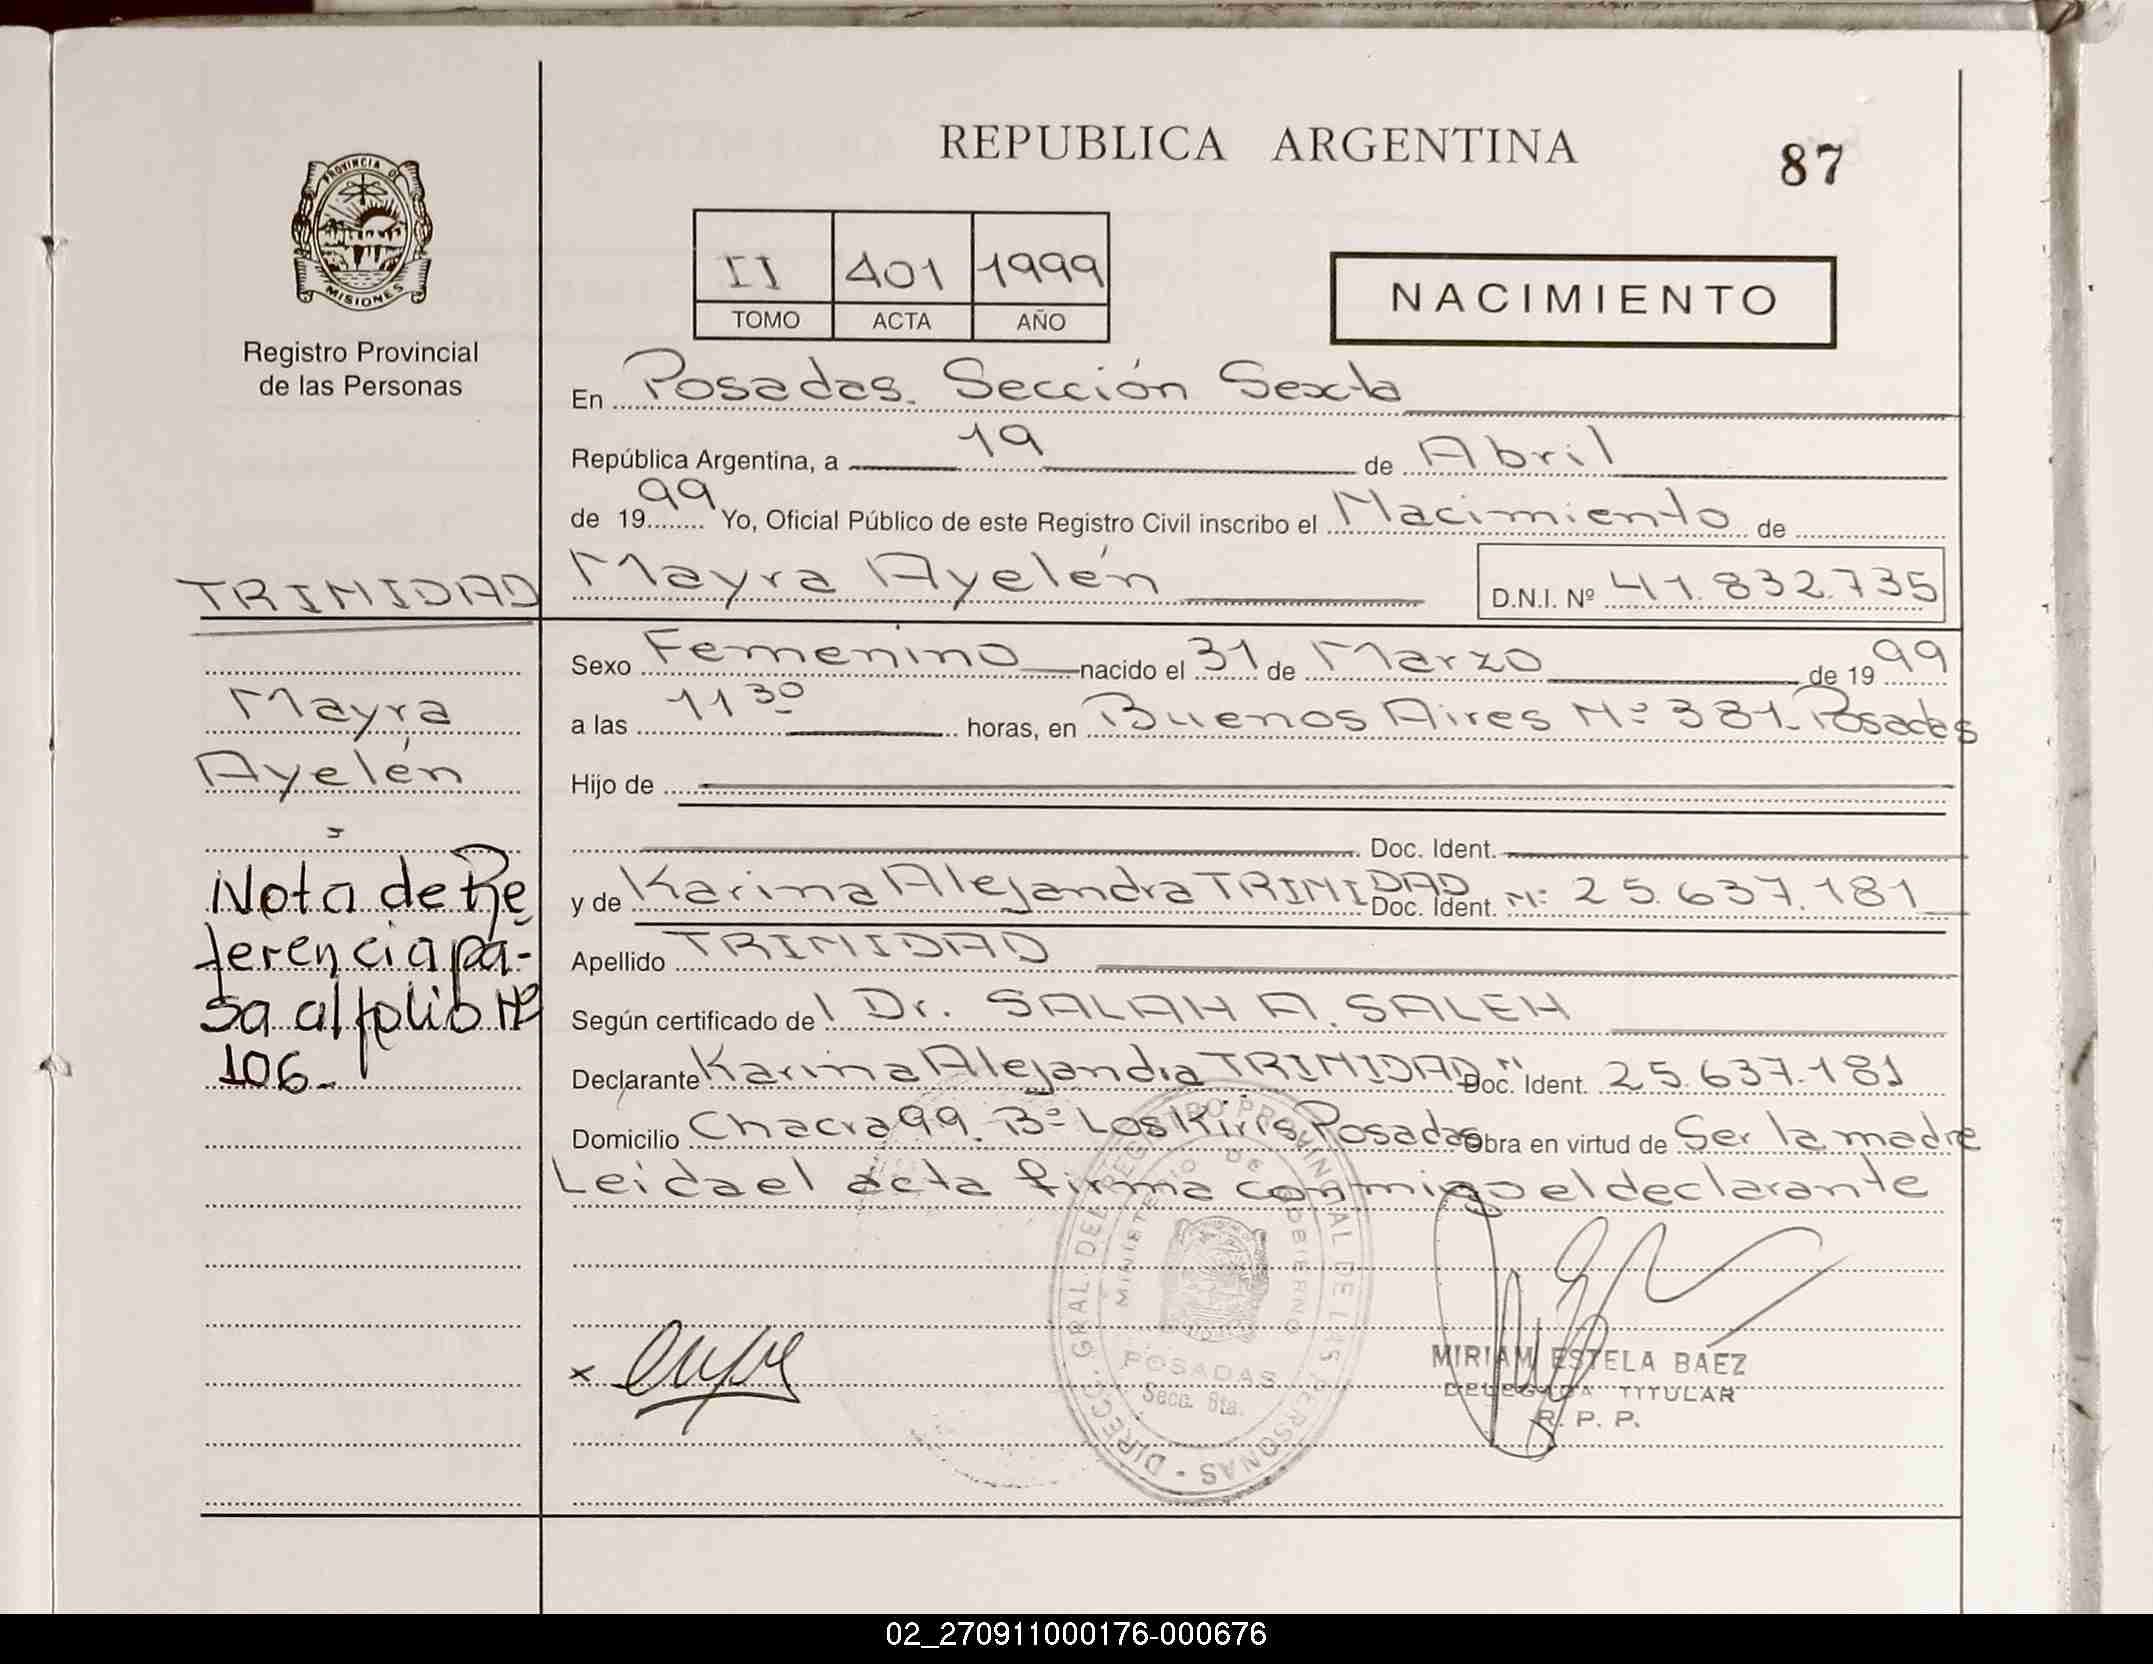 REPUBLICA ARGENTINA
87
PROVINCIA DE
MISIONES
Registro Provincial
de las Personas
II 401 1999
TOMO ACTA AÑO
NACIMIENTO
En Posadas. Sección Sexta
República Argentina, a 19 de Abril
de 1999 Yo, Oficial Público de este Registro Civil inscribo el Nacimiento de
TRINIDAD Mayra Ayelén D.N.I. Nº 41.832.735
Sexo Femenino nacido el 31 de Marzo de 1999
a las 11 30 horas, en Buenos Aires Nº 381 - Posadas
Hijo de
Doc. Ident.
y de Karina Alejandra TRINIDAD Doc. Ident. Nº 25.637.181
Apellido TRINIDAD
Según certificado del Dr. SALAH A. SALEH
Declarante Karina Alejandra TRINIDAD Doc. Ident. Nº 25.637.181
Domicilio Chacra 99. Bº Los Kiris, Posadas Obra en virtud de Ser la madre
Leida el acta firma conmigo el declarante
Mayra
Ayelén
Nota de Re
ferencia pa-
sa al folio Nº
106.-
DIRECC. GRAL. DEL REGISTRO PROVINCIAL DE LAS PERSONAS
MINISTERIO DE GOBIERNO
POSADAS
Secc. 6ta.
x
MIRIAM ESTELA BAEZ
DELEGADA TITULAR
R. P. P.
02_270911000176-000676